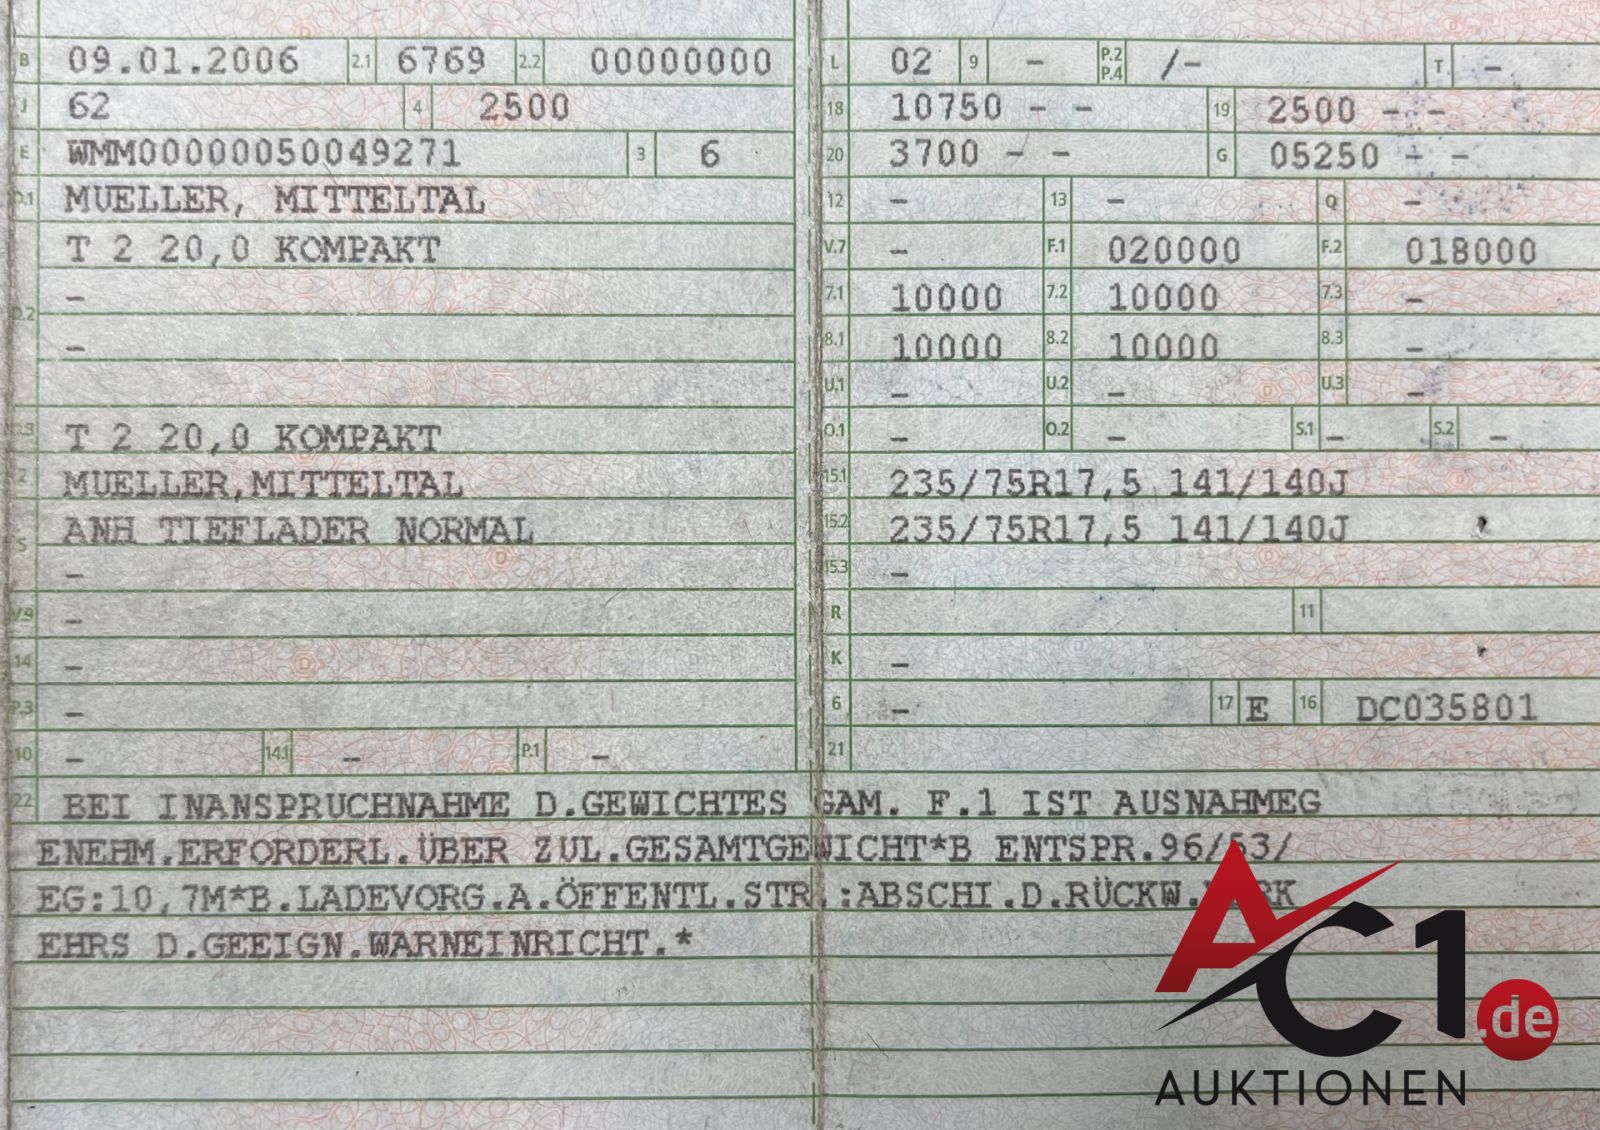 B 09.01.2006 2.1 6769 2.2 00000000
J 62 4 2500
E WMM00000050049271 3 6
D.1 MUELLER, MITTELTAL
T 2 20,0 KOMPAKT
–
D.2
–
.3 T 2 20,0 KOMPAKT
2 MUELLER,MITTELTAL
5 ANH TIEFLADER NORMAL
–
V.9 –
14 –
P.3 –
10 – 14.1 – P.1 –
L 02 9 – P.2 P.4 /– T –
18 10750 – – 19 2500 – –
20 3700 – – G 05250 – –
12 – 13 – Q –
V.7 – F.1 020000 F.2 018000
7.1 10000 7.2 10000 7.3 –
8.1 10000 8.2 10000 8.3 –
U.1 – U.2 – U.3 –
O.1 – O.2 – S.1 – S.2 –
15.1 235/75R17,5 141/140J
15.2 235/75R17,5 141/140J
15.3 –
R 11
K –
6 – 17 E 16 DC035801
21
22 BEI INANSPRUCHNAHME D.GEWICHTES GAM. F.1 IST AUSNAHMEG
ENEHM.ERFORDERL.ÜBER ZUL.GESAMTGEWICHT*B ENTSPR.96/53/
EG:10,7M*B.LADEVORG.A.ÖFFENTL.STR.:ABSCHI.D.RÜCKW.VERK
EHRS D.GEEIGN.WARNEINRICHT.*
AC1.de
AUKTIONEN